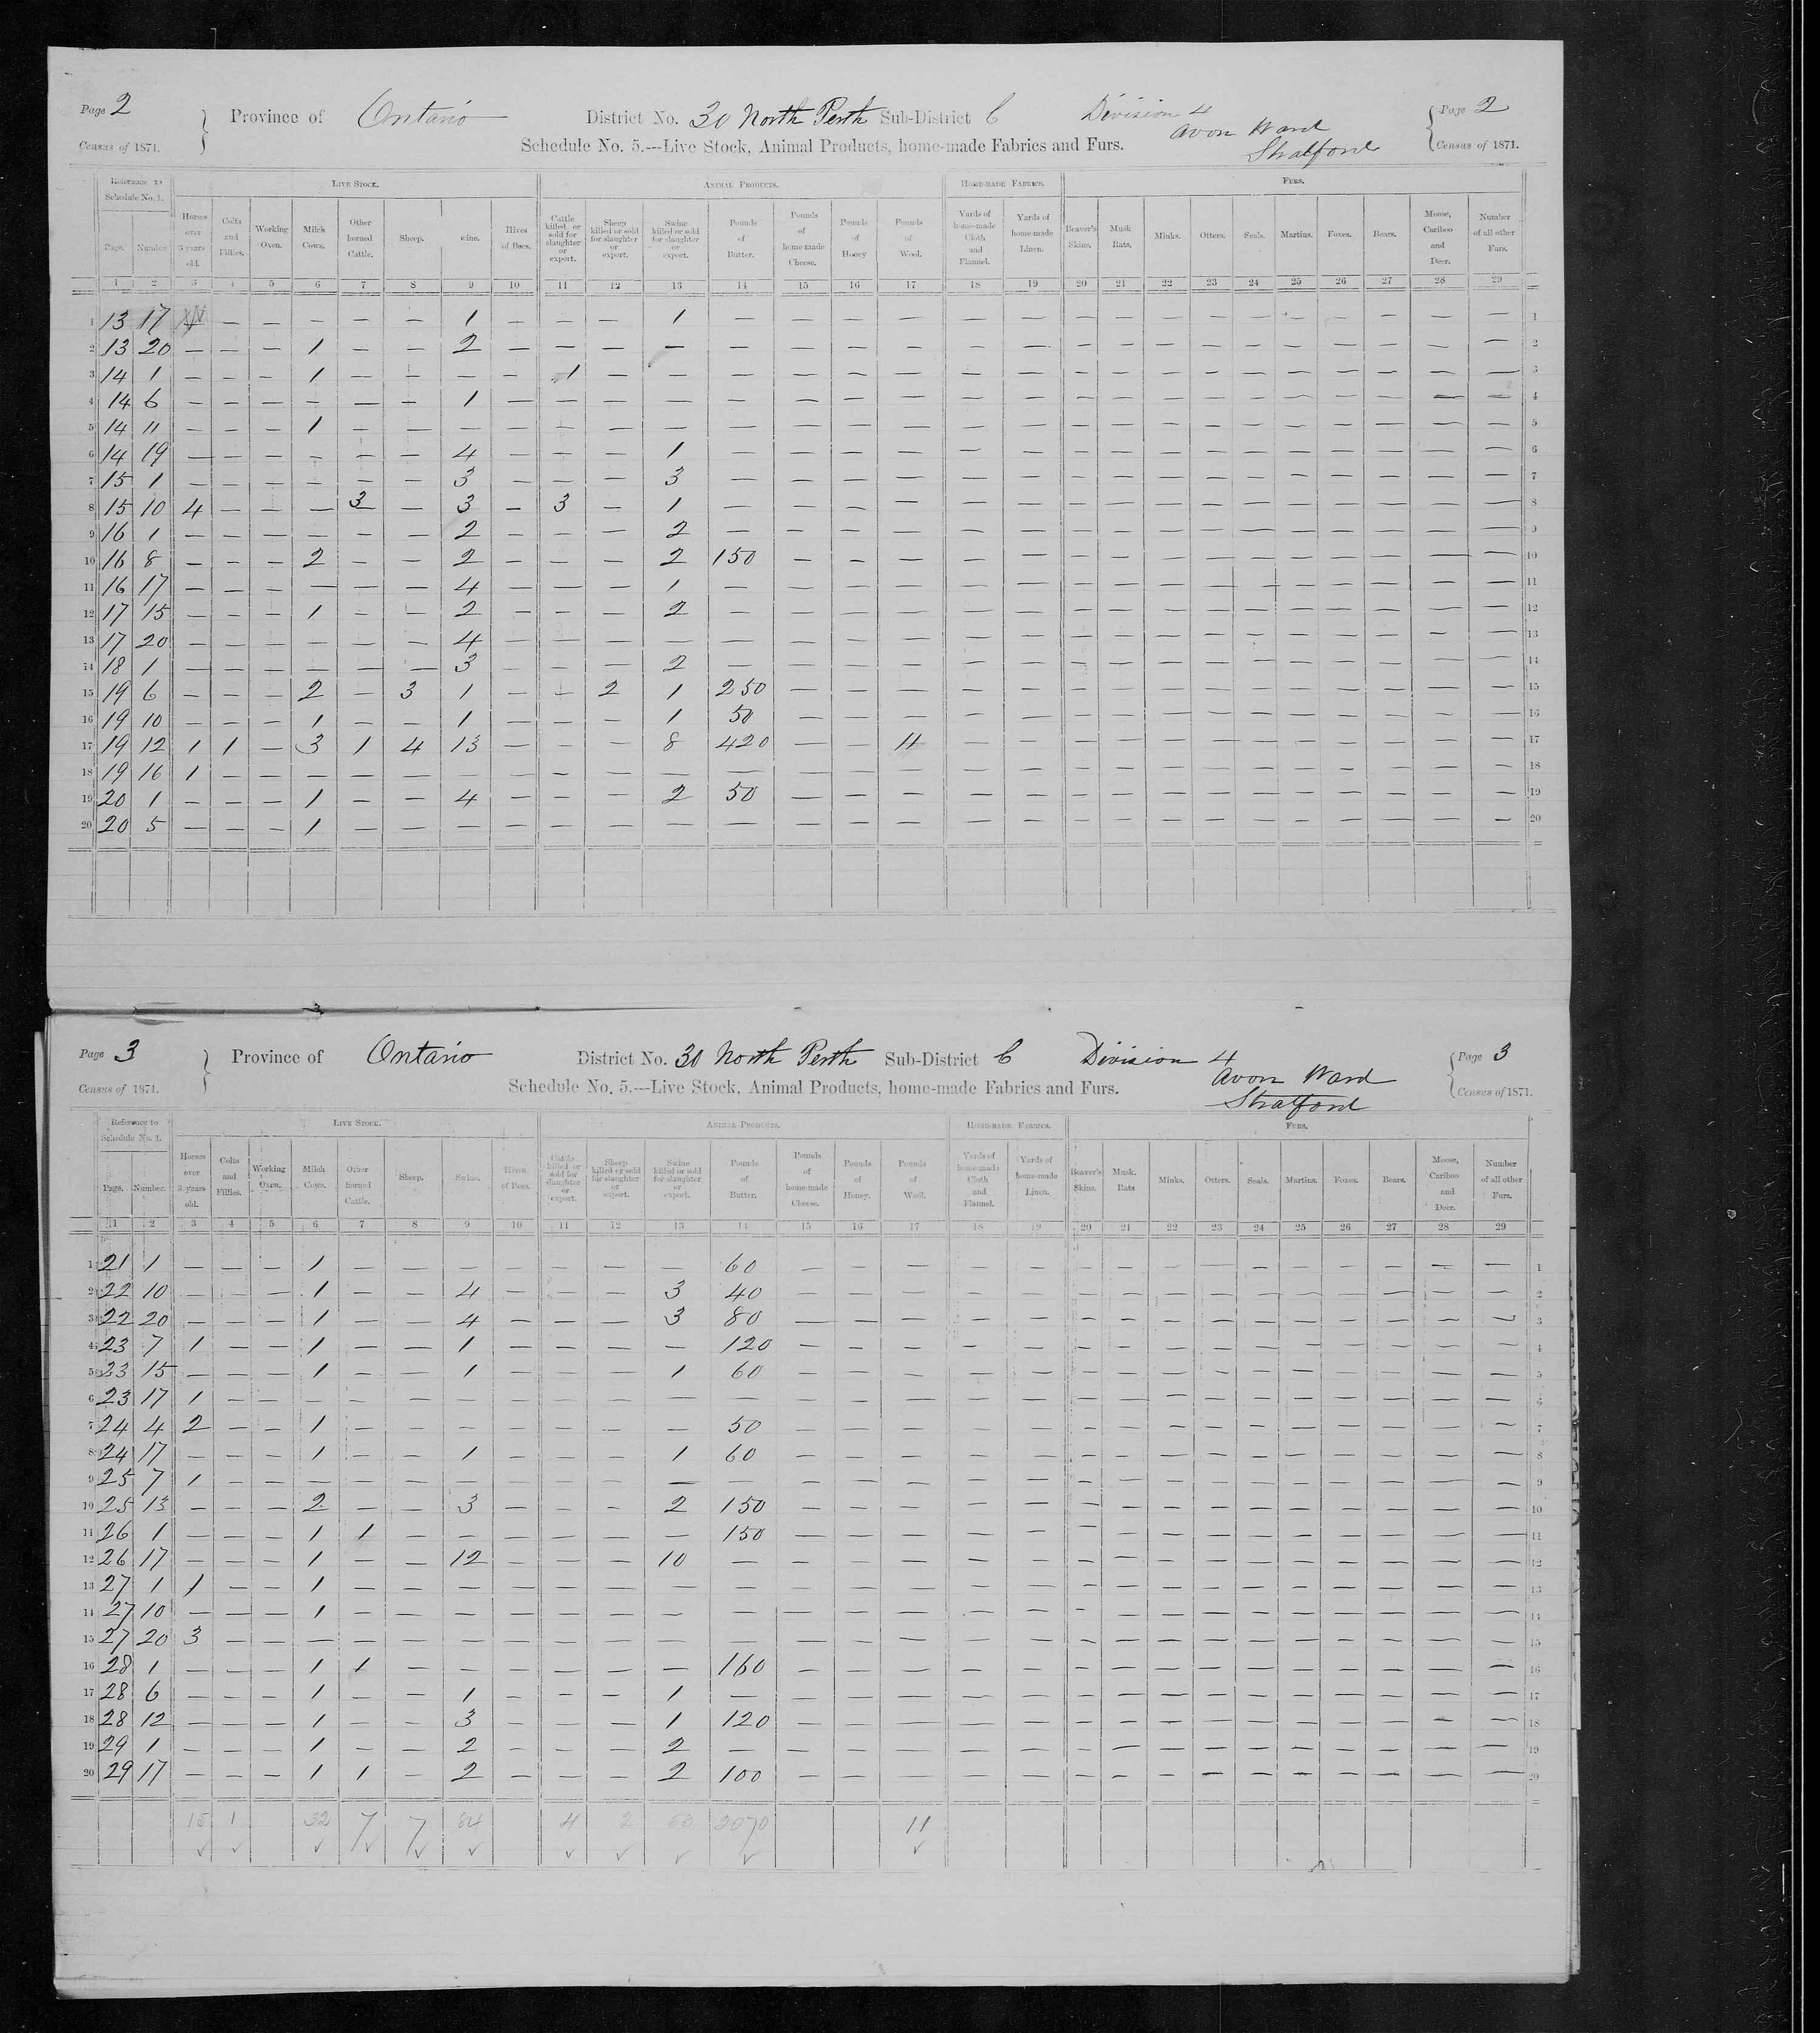 Page 2 Province of Ontario District No. 30 North Perth Sub-District C Division 4 Page 2
Avon Ward
Census of 1871. Schedule No. 5.---Live Stock, Animal Products, home-made Fabrics and Furs. Stratford Census of 1871.
Reference to Schedule No. 1. LIVE STOCK. ANIMAL PRODUCTS. HOME-MADE FABRICS. FURS.
Page. Number Horses over 3 years old. Colts and Fillies. Working Oxen. Milch Cows. Other horned Cattle. Sheep. wine. Hives of Bees. Cattle killed or sold for slaughter or export. Sheep killed or sold for slaughter or export. Swine killed or sold for slaughter or export. Pounds of Butter. Pounds of home-made Cheese. Pounds of Honey Pounds of Wool. Yards of home-made Cloth and Flannel. Yards of home-made Linen. Beaver's Skins. Musk Rats. Minks. Otters. Seals. Martins. Foxes. Bears. Moose, Cariboo and Deer. Number of all other Furs.
1 2 3 4 5 6 7 8 9 10 11 12 13 14 15 16 17 18 19 20 21 22 23 24 25 26 27 28 29
1 13 17 — — — — — 1 — — — 1 — — — — — — — — — — — — — — — — 1
2 13 20 — — — 1 — — 2 — — — — — — — — — — — — — — — — — — — — 2
3 14 1 — — — 1 — — — — 1 — — — — — — — — — — — — — — — — — — 3
4 14 6 — — — — — — 1 — — — — — — — — — — — — — — — — — — — — 4
5 14 11 — — — 1 — — — — — — — — — — — — — — — — — — — — — — — 5
6 14 19 — — — — — — 4 — — — 1 — — — — — — — — — — — — — — — — 6
7 15 1 — — — — — — 3 — — — 3 — — — — — — — — — — — — — — — — 7
8 15 10 4 — — — 3 — 3 — 3 — 1 — — — — — — — — — — — — — — — — 8
9 16 1 — — — — — — 2 — — — 2 — — — — — — — — — — — — — — — — 9
10 16 8 — — — 2 — — 2 — — — 2 150 — — — — — — — — — — — — — — — 10
11 16 17 — — — — — — 4 — — — 1 — — — — — — — — — — — — — — — — 11
12 17 15 — — — 1 — — 2 — — — 2 — — — — — — — — — — — — — — — — 12
13 17 20 — — — — — — 4 — — — — — — — — — — — — — — — — — — — — 13
14 18 1 — — — — — — 3 — — — 2 — — — — — — — — — — — — — — — — 14
15 19 6 — — — 2 — 3 1 — — 2 1 250 — — — — — — — — — — — — — — — 15
16 19 10 — — — 1 — — 1 — — — 1 50 — — — — — — — — — — — — — — — 16
17 19 12 1 1 — 3 1 4 13 — — — 8 420 — — 11 — — — — — — — — — — — — 17
18 19 16 1 — — — — — — — — — — — — — — — — — — — — — — — — — — 18
19 20 1 — — — 1 — — 4 — — — 2 50 — — — — — — — — — — — — — — — 19
20 20 5 — — — 1 — — — — — — — — — — — — — — — — — — — — — — — 20
Page 3 Province of Ontario District No. 30 North Perth Sub-District C Division 4 Page 3
Avon Ward
Census of 1871. Schedule No. 5.---Live Stock, Animal Products, home-made Fabrics and Furs. Stratford Census of 1871.
Reference to Schedule No. 1. LIVE STOCK. ANIMAL PRODUCTS. HOME-MADE FABRICS. FURS.
Page. Number. Horses over 3 years old. Colts and Fillies. Working Oxen. Milch Cows. Other horned Cattle. Sheep. Swine. Hives of Bees. Cattle killed or sold for slaughter or export. Sheep killed or sold for slaughter or export. Swine killed or sold for slaughter or export. Pounds of Butter. Pounds of home-made Cheese. Pounds of Honey. Pounds of Wool. Yards of home-made Cloth and Flannel. Yards of home-made Linen. Beaver's Skins. Musk. Rats Minks. Otters. Seals. Martins. Foxes. Bears. Moose, Cariboo and Deer. Number of all other Furs.
1 2 3 4 5 6 7 8 9 10 11 12 13 14 15 16 17 18 19 20 21 22 23 24 25 26 27 28 29
1 21 1 — — — 1 — — — — — — — 60 — — — — — — — — — — — — — — — 1
2 22 10 — — — 1 — — 4 — — — 3 40 — — — — — — — — — — — — — — 2
3 22 20 — — — 1 — — 4 — — — 3 80 — — — — — — — — — — — — — — — 3
4 23 7 1 — — 1 — — 1 — — — — 120 — — — — — — — — — — — — — — — 4
5 23 15 — — — 1 — — 1 — — — 1 60 — — — — — — — — — — — — — — — 5
6 23 17 1 — — — — — — — — — — — — — — — — — — — — — — — — — 6
7 24 4 2 — — 1 — — — — — — — 50 — — — — — — — — — — — — — — — 7
8 24 17 — — — 1 — — 1 — — — 1 60 — — — — — — — — — — — — — — — 8
9 25 7 1 — — — — — — — — — — — — — — — — — — — — — — — — — — 9
10 25 13 — — — 2 — — 3 — — — 2 150 — — — — — — — — — — — — — — — 10
11 26 1 — — — 1 1 — — — — — — 150 — — — — — — — — — — — — — — — 11
12 26 17 — — — 1 — — 12 — — — 10 — — — — — — — — — — — — — — — — 12
13 27 1 1 — — 1 — — — — — — — — — — — — — — — — — — — — — — 13
14 27 10 — — — 1 — — — — — — — — — — — — — — — — — — — — — — — 14
15 27 20 3 — — — — — — — — — — — — — — — — — — — — — — — — — 15
16 28 1 — — — 1 1 — — — — — — 160 — — — — — — — — — — — — — — — 16
17 28 6 — — — 1 — — 1 — — — 1 — — — — — — — — — — — — — — — — 17
18 28 12 — — — 1 — — 3 — — — 1 120 — — — — — — — — — — — — — — — 18
19 29 1 — — — 1 — — 2 — — — 2 — — — — — — — — — — — — — — — — 19
20 29 17 — — — 1 1 — 2 — — — 2 100 — — — — — — — — — — — — — — — 20
15 1 32 7 7 84 4 2 2070 11